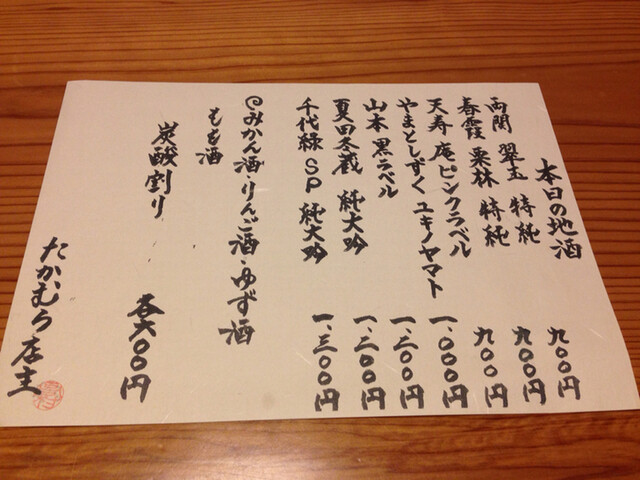 本日の地酒
両関 翠玉 特純 九〇〇円
春霞 栗林 特純 九〇〇円
天寿 庵ピンクラベル 九〇〇円
やまとしずく ユキノヤマト 一、〇〇〇円
山本 黒ラベル 一、二〇〇円
夏田冬蔵 純大吟 一、三〇〇円
千代緑 SP 純大吟 一、三〇〇円
みかん酒・りんご酒・ゆず酒
もも酒
炭酸割り
各六〇〇円
たかむら 店主